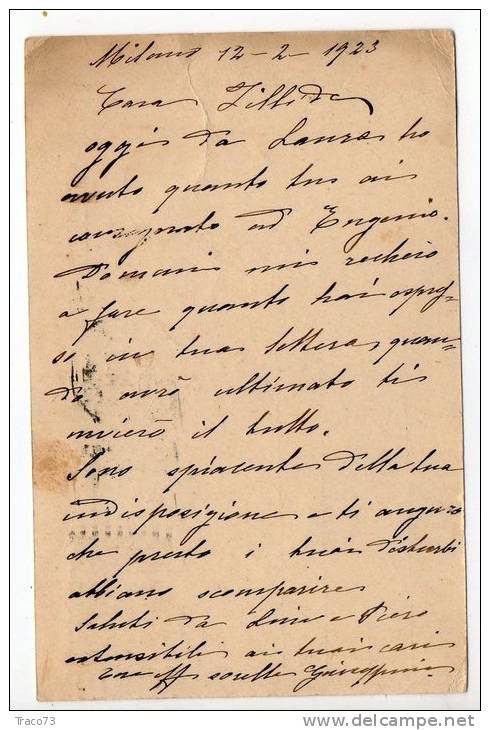 Milano 12-2-1923
Cara
oggi da Laura ho
avuto quanto tu ai
consegnato ad Eugenio.
Domani mi recherò
a fare quanto hai espres-
so in tua lettera quan-
do avrò ultimato ti
invierò il tutto.
Sono spiacente della tua
indisposizione e ti auguro
che presto i tuoi disturbi
abbiano scomparire
Saluti da Lina e Piero
estensibili ai tuoi cari
tua aff sorella Giuseppina
Traco73
www.delcampe.net